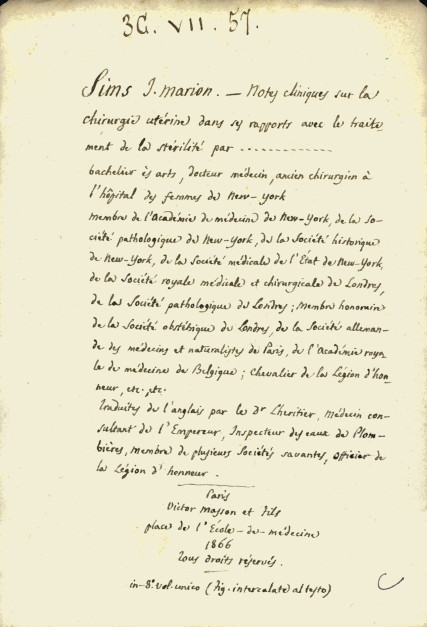 3G. VII. 57.
Sims J. Marion. — Notes cliniques sur la
chirurgie utérine dans ses rapports avec le traite
ment de la stérilité par ------------
bachelier ès arts, docteur médecin, ancien chirurgien à
l'hôpital des femmes de New-York
membre de l'Académie de médecine de New-York, de la So-
ciété pathologique de New-York, de la Société historique
de New-York, de la Société médicale de l'État de New-York,
de la Société royale médicale et chirurgicale de Londres,
de la Société pathologique de Londres; Membre honoraire
de la Société obstétrique de Londres, de la Société alleman-
de des médecins et naturalistes de Paris, de l'Académie roya
le de médecine de Belgique; Chevalier de la Légion d'hon
neur, etc., etc.
Traduites de l'anglais par le Dr Lheritier, Médecin con-
sultant de l'Empereur, Inspecteur des eaux de Plom-
bières, membre de plusieurs Sociétés savantes, officier de
la Légion d'honneur.
Paris
Victor Masson et Fils
place de l'École-de-médecine
1866
Tous droits réservés.
in-8° vol. unico (fig. intercalate al testo)